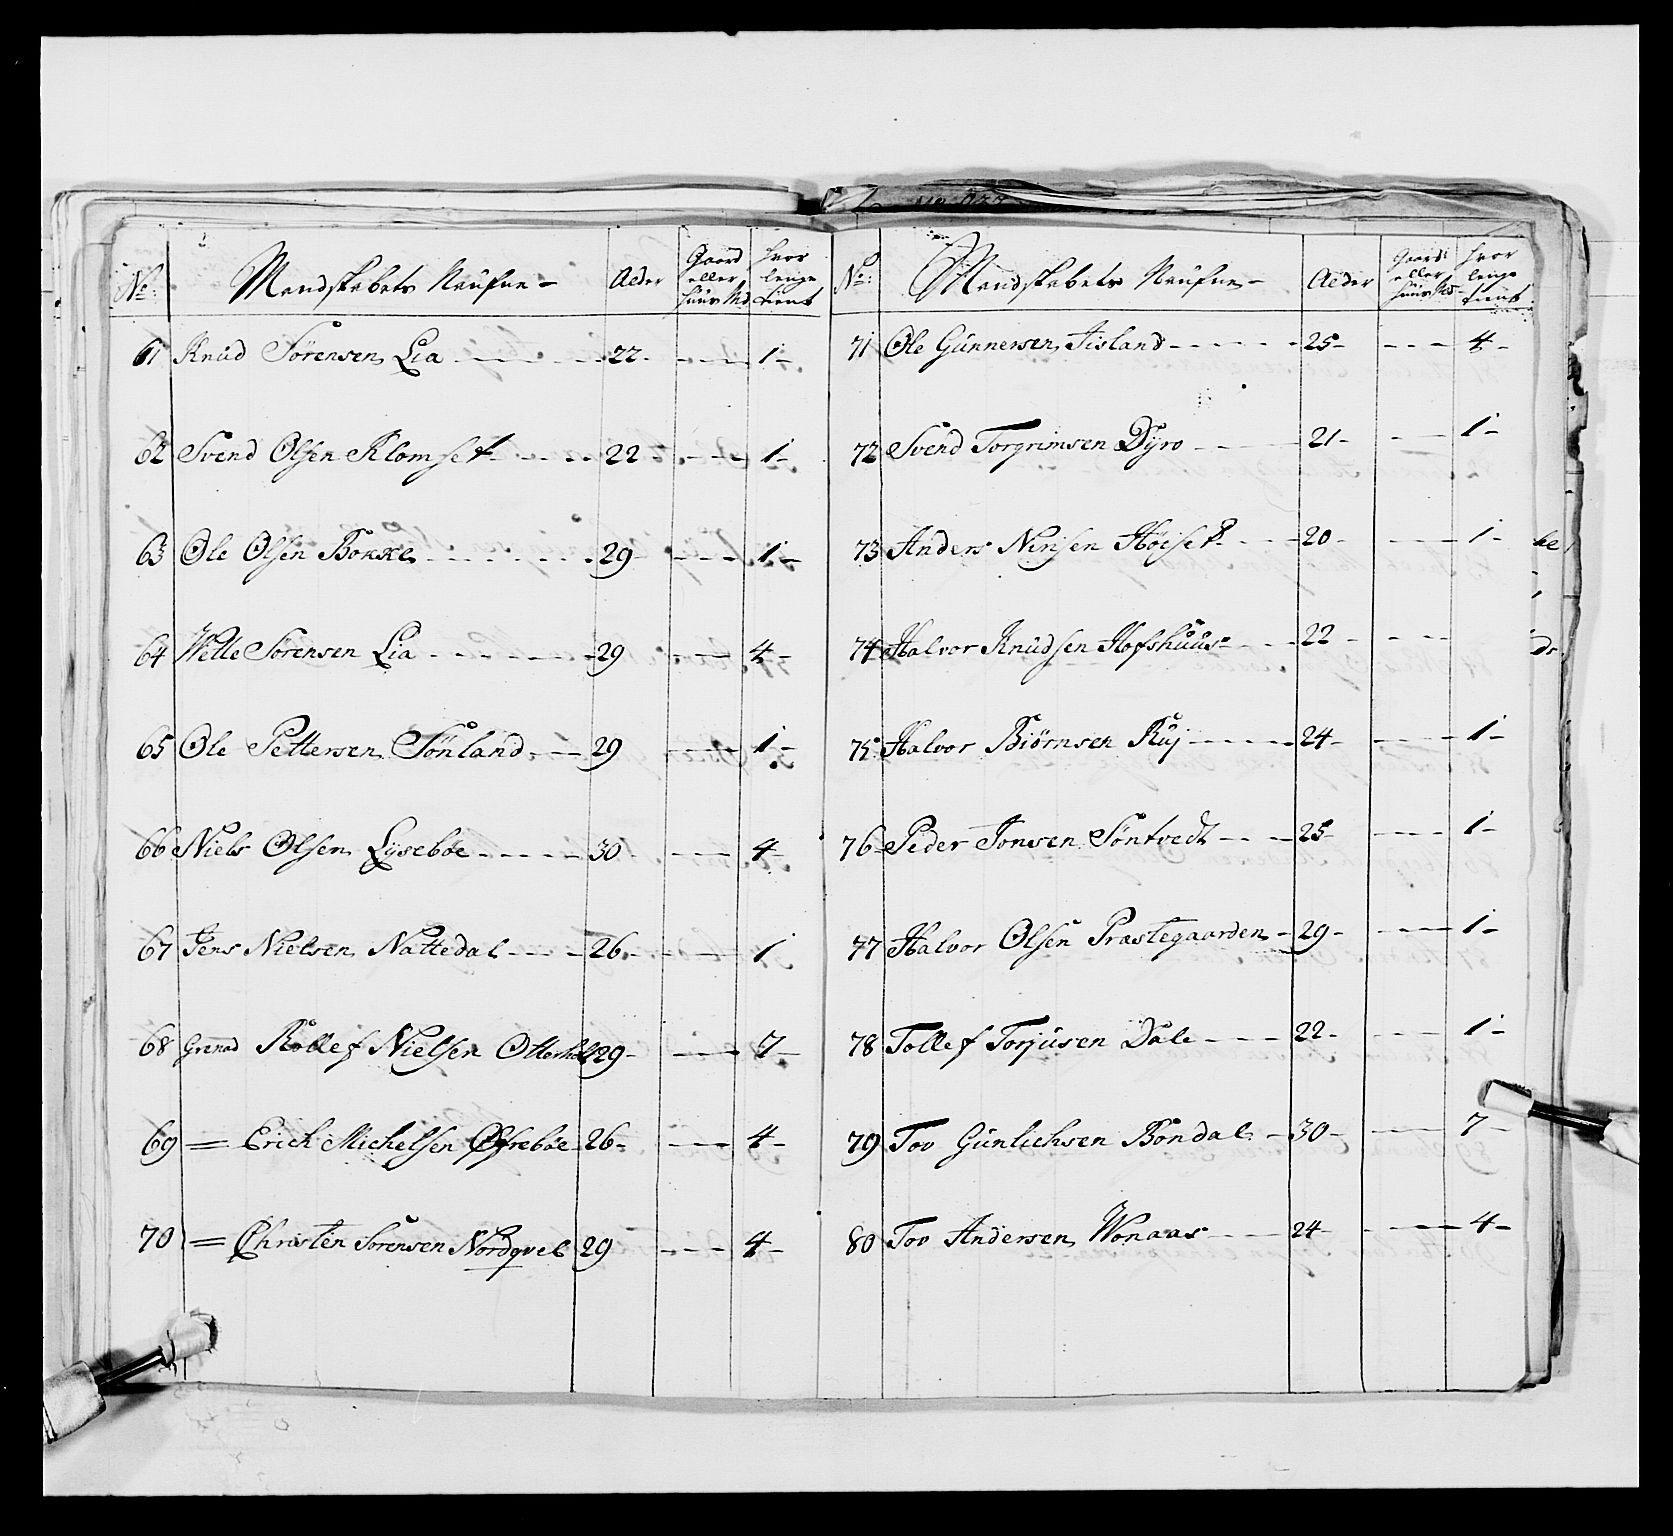 No: Mandskabets Naufne - Alder Gaard eller Huus Md hvor lenge tient
61 Knud Sørensen Lia 22 - - - 1 -
62 Svend Olsen Klomset 22 - - - 1 -
63 Ole Olsen Bokke 29 - - - 1 -
64 Wetle Sørensen Lia 29 - - - 4 -
65 Ole Pettersen Sønland 29 - - - 1 -
66 Niels Olsen Lysebøe 30 - - - 4 -
67 Jens Nielsen Nattedal 26 - - - 1
68 Grenad Rollef Nielsen Otterholt 29 - - - 7 -
69 = Erich Michelsen Øfrebøe 26 - - - 4 -
70 = Christen Sørensen Nordqvel 29 - - - 4 -
No: Mandskabets Naufne - Alder Gaard eller Huus Md hvor lenge tient
71 Ole Gunnersen Fisland 25 - - - 4 -
72 Svend Torgrimsen Dyro 21 - - - 1 -
73 Anders Nirisen Høiset 20 - - - 1 -
74 Halvor Knudsen Hofshuus 22 - - -
75 Halvor Biørnsen Ruj 24 - - - 1 -
76 Peder Jonsen Søntvedt 25 - - - 1 -
77 Halvor Olsen Præstegaarden 29 - - - 1 -
78 Tollef Torjusen Dale 22 - - - 1 -
79 Tov Gunlichsen Bondal 30 - - - 7 -
80 Tov Andersen Wonaas 24 - - - 4 -